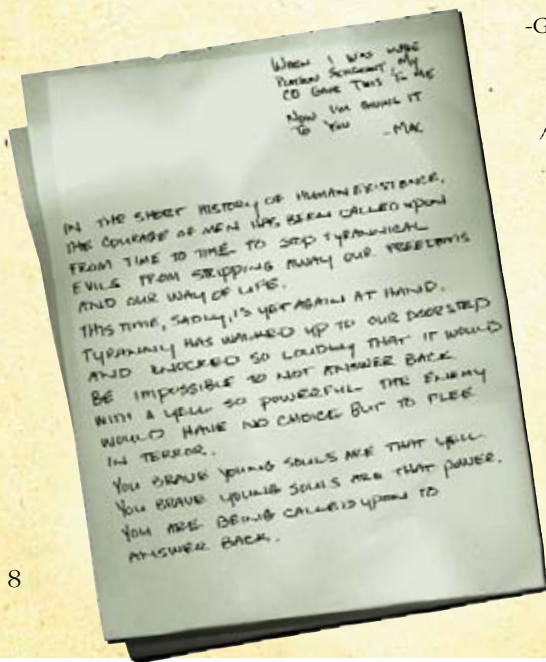 -G
WHEN I WAS MADE
PLATOON SERGEANT, MY
CO GAVE THIS TO ME
NOW I'M GIVING IT
TO YOU -MAC
IN THE SHORT HISTORY OF HUMAN EXISTENCE,
THE COURAGE OF MEN HAS BEEN CALLED UPON
FROM TIME TO TIME TO STOP TYRANNICAL
EVILS FROM STRIPPING AWAY OUR FREEDOMS
AND OUR WAY OF LIFE.
THIS TIME, SADLY, IS YET AGAIN AT HAND.
TYRANNY HAS WALKED UP TO OUR DOORSTEP
AND KNOCKED SO LOUDLY THAT IT WOULD
BE IMPOSSIBLE TO NOT ANSWER BACK
WITH A YELL SO POWERFUL THE ENEMY
WOULD HAVE NO CHOICE BUT TO FLEE
IN TERROR.
YOU BRAVE YOUNG SOULS ARE THAT YELL.
YOU BRAVE YOUNG SOULS ARE THAT POWER.
YOU ARE BEING CALLED UPON TO
ANSWER BACK.
8